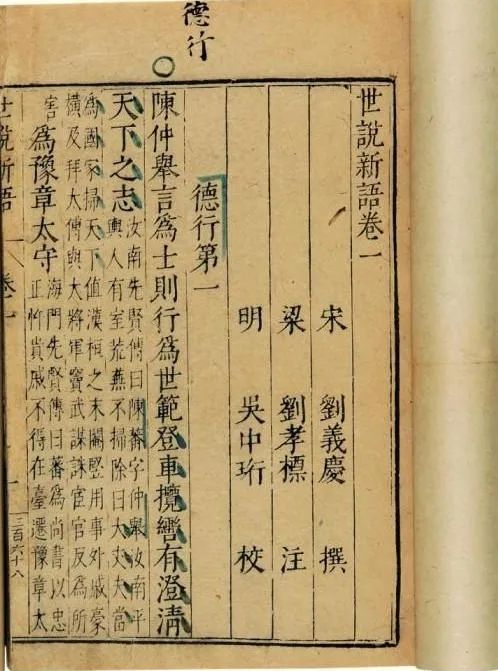 德行
世說新語卷一
宋 劉義慶 撰
梁 劉孝標 注
明 吳中珩 校
德行第一
陳仲舉言爲士則行爲世範登車攬轡有澄清
天下之志
汝南先賢傳曰陳蕃字仲舉汝南平
輿人有室荒蕪不掃除曰大丈夫當
爲國家掃天下值漢桓之末閹豎用事外戚豪
橫及拜太傅與大將軍竇武謀誅宦官反爲所
害
爲豫章太守
海內先賢傳曰蕃爲尚書以忠
正忤貴戚不得在臺遷豫章太
世說新語 卷一 一 三百六十八